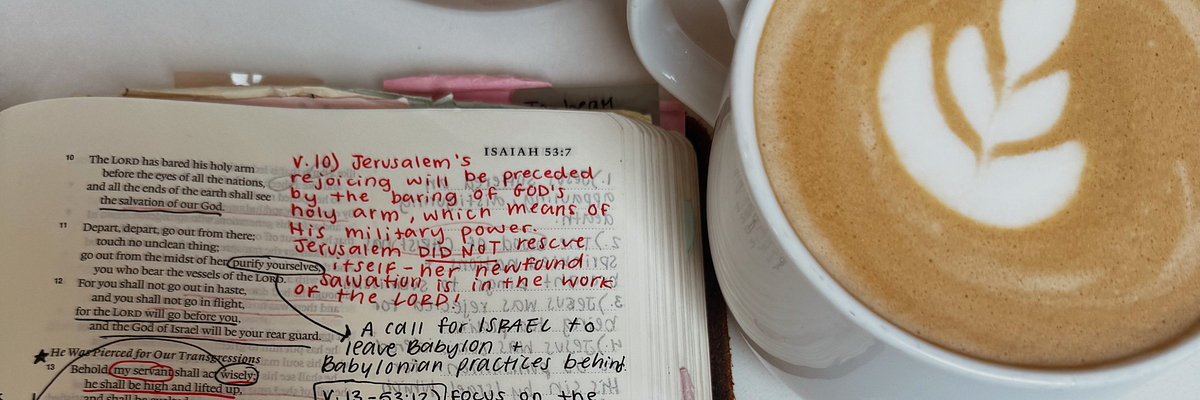 To bear
ISAIAH 53:7
10 The LORD has bared his holy arm
before the eyes of all the nations,
and all the ends of the earth shall see
the salvation of our God.
11 Depart, depart, go out from there;
touch no unclean thing;
go out from the midst of her; purify yourselves,
you who bear the vessels of the LORD.
12 For you shall not go out in haste,
and you shall not go in flight,
for the LORD will go before you,
and the God of Israel will be your rear guard.
He Was Pierced for Our Transgressions
13 Behold, my servant shall act wisely;
he shall be high and lifted up,
and shall be exalted.
v.10) Jerusalem's
rejoicing will be preceded
by the baring of GOD'S
holy arm, which means of
His military power.
Jerusalem DID NOT rescue
itself - her newfound
Salvation is in the work
OF the LORD!
A call for ISRAEL to
leave Babylon +
Babylonian practices behind.
v.13-53:12) Focus on the